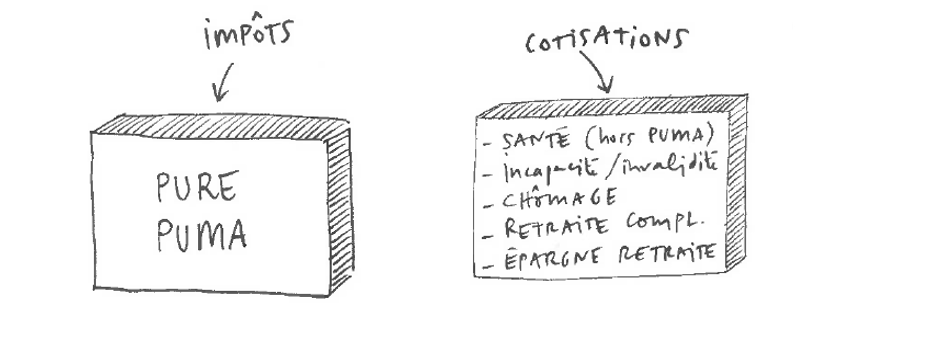 impôts
PURE
PUMA
cotisations
- SANTÉ (hors PUMA)
- incapacité/invalidité
- CHÔMAGE
- RETRAITE COMPL.
- ÉPARGNE RETRAITE